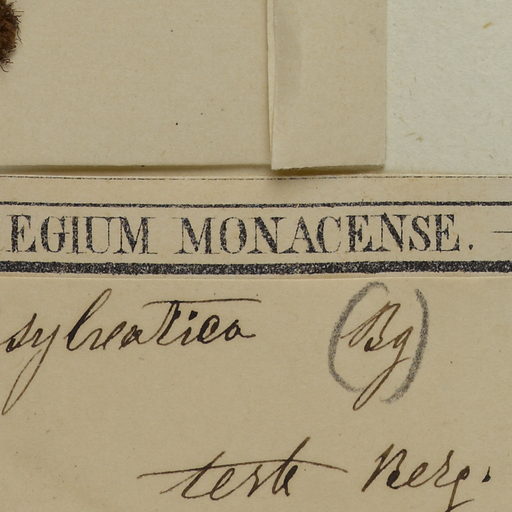 EGIUM MONACENSE.
sylvatica (Bg)
teste Berg.